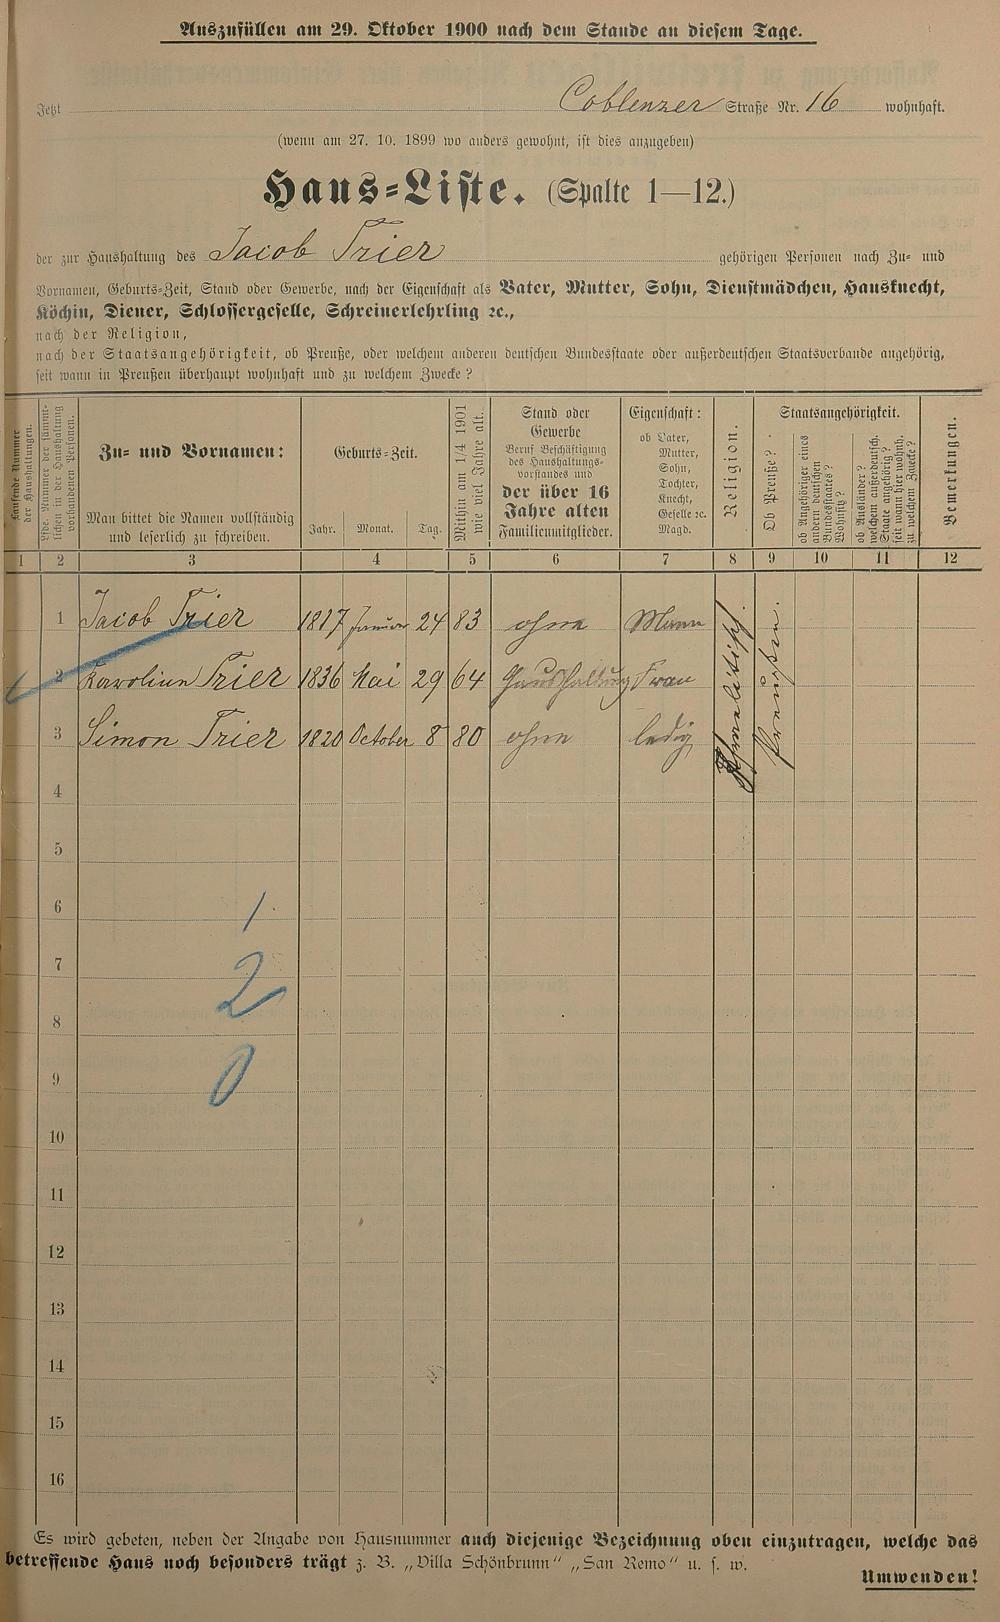 Auszufüllen am 29. Oktober 1900 nach dem Stande an diesem Tage.
Jetzt Coblenzer Straße Nr. 16 wohnhaft.
(wenn am 27. 10. 1899 wo anders gewohnt, ist dies anzugeben)
Haus-Liste. (Spalte 1—12.)
der zur Haushaltung des Jacob Trier gehörigen Personen nach Zu- und
Vornamen, Geburts-Zeit, Stand oder Gewerbe, nach der Eigenschaft als Vater, Mutter, Sohn, Dienstmädchen, Hausknecht,
Köchin, Diener, Schlossergeselle, Schreinerlehrling ꝛc.,
nach der Religion,
nach der Staatsangehörigkeit, ob Preuße, oder welchem anderen deutschen Bundesstaate oder außerdeutschen Staatsverbande angehörig,
seit wann in Preußen überhaupt wohnhaft und zu welchem Zwecke?
Laufende Nummer
der Haushaltungen.
Lfde. Nummer der sämmt-
lichen in der Haushaltung
vorhandenen Personen.
Zu- und Vornamen:
Man bittet die Namen vollständig
und leserlich zu schreiben.
Geburts-Zeit.
Jahr. Monat. Tag.
Mithin am 1/4 1901
wie viel Jahre alt.
Stand oder
Gewerbe
Beruf Beschäftigung
des Haushaltungs-
vorstandes und
der über 16
Jahre alten
Familienmitglieder.
Eigenschaft:
ob Vater,
Mutter,
Sohn,
Tochter,
Knecht,
Geselle ꝛc.
Magd.
Religion.
Staatsangehörigkeit.
Ob Preuße?
ob Angehöriger eines
andern deutschen
Bundesstaates?
Wohnsitz?
ob Ausländer?
welchem außerdeutsch.
Staate angehörig?
seit wann hier wohnh.
zu welchem Zwecke?
Bemerkungen.
1 2 3 4 5 6 7 8 9 10 11 12
1 Jacob Trier 1817 Januar 24 83 ohne Mann
2 Karoline Trier 1836 Mai 29 64 Haushaltung Frau
3 Simon Trier 1820 October 8 80 ohne ledig
Israelitisch.
Preußen.
4
5
6
1
7
2
8
9
0
10
11
12
13
14
15
16
Es wird gebeten, neben der Angabe von Hausnummer auch diejenige Bezeichnung oben einzutragen, welche das
betreffende Haus noch besonders trägt z. B. „Villa Schönbrunn“ „San Remo“ u. s. w.
Umwenden!